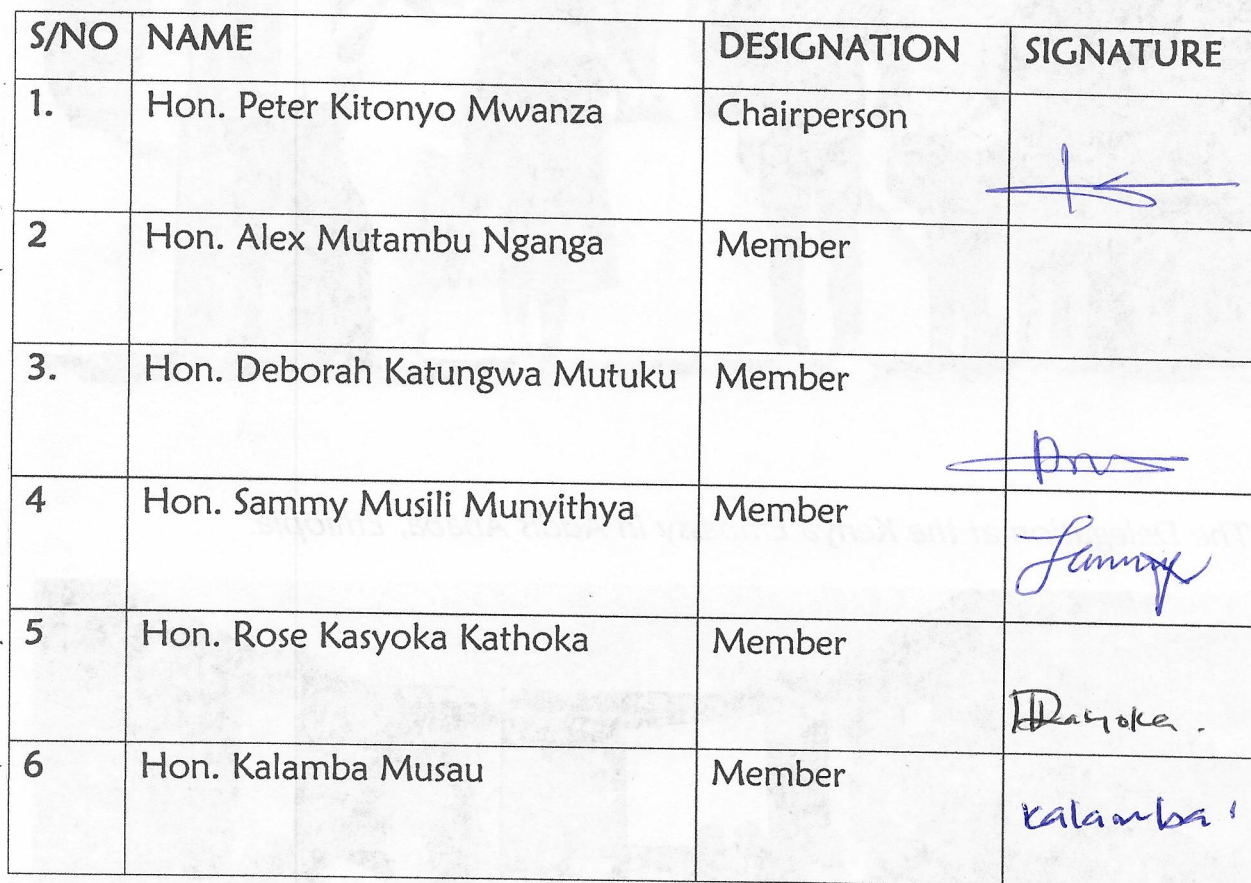 S/NO NAME DESIGNATION SIGNATURE
1. Hon. Peter Kitonyo Mwanza Chairperson
2 Hon. Alex Mutambu Nganga Member
3. Hon. Deborah Katungwa Mutuku Member
4 Hon. Sammy Musili Munyithya Member
5 Hon. Rose Kasyoka Kathoka Member
6 Hon. Kalamba Musau Member kalamba